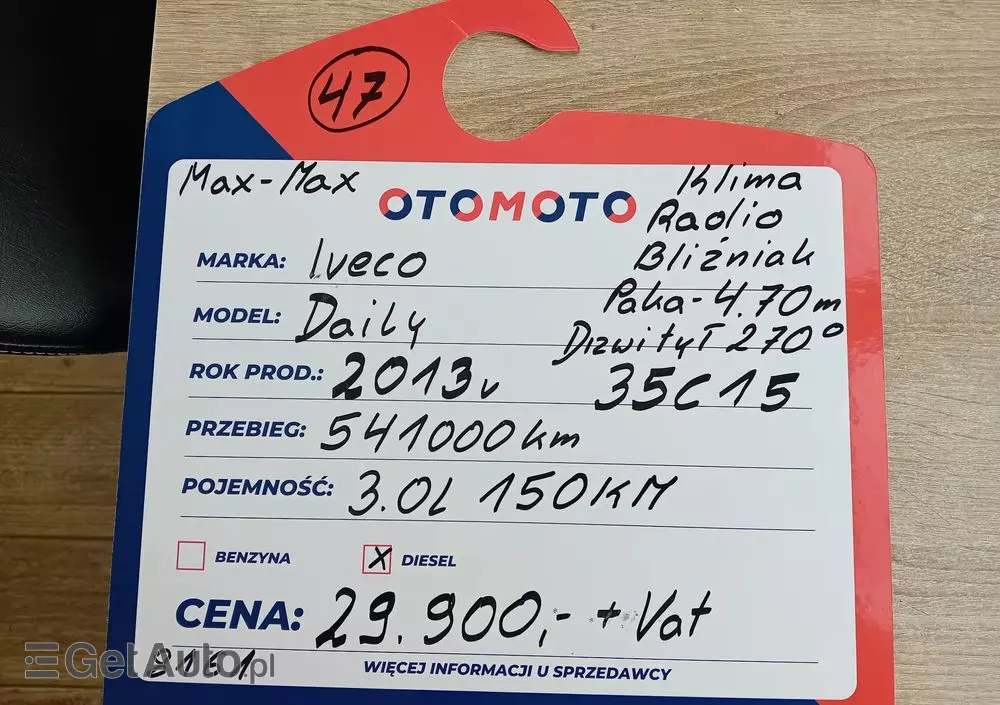 47
Max-Max
OTOMOTO
Klima
Radio
Bliźniak
Paka-4.70m
Drzwi tył 270°
MARKA: Iveco
MODEL: Daily
ROK PROD.: 2013r 35C15
PRZEBIEG: 541000km
POJEMNOŚĆ: 3.0L 150KM
BENZYNA
X DIESEL
CENA: 29.900,- + Vat
WIĘCEJ INFORMACJI U SPRZEDAWCY
GetAuto.pl